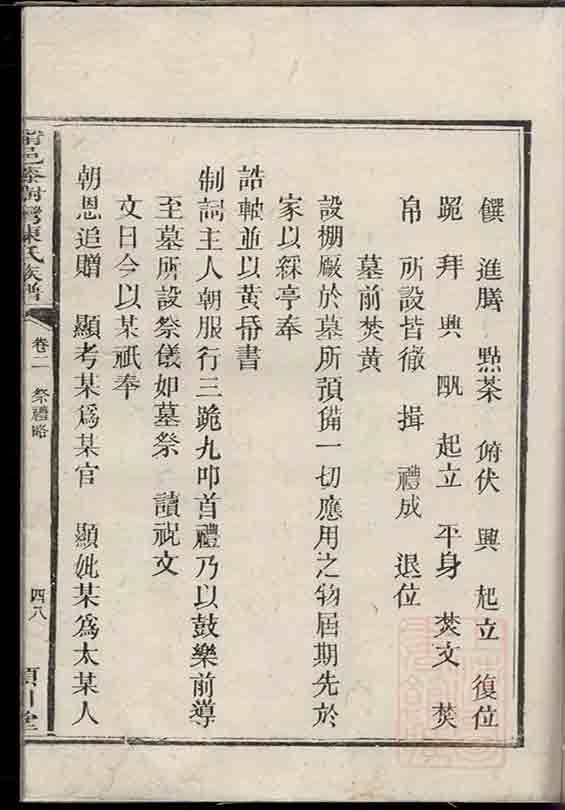 饌 進膳 點茶 俯伏 興 起立 復位
跪 拜 興 起立 平身 焚文 焚
帛 所設皆徹 揖 禮成 退位
墓前焚黃
設棚厰於墓所預備一切應用之物屆期先於
家以綵亭奉
誥軸並以黃帋書
制詞主人朝服行三跪九叩首禮乃以鼓樂前導
至墓所設祭儀如墓祭 讀祝文
文曰今以某祇奉
朝恩追贈 顯考某爲某官 顯妣某爲太某人
陳氏族譜
卷二 祭禮略
四八